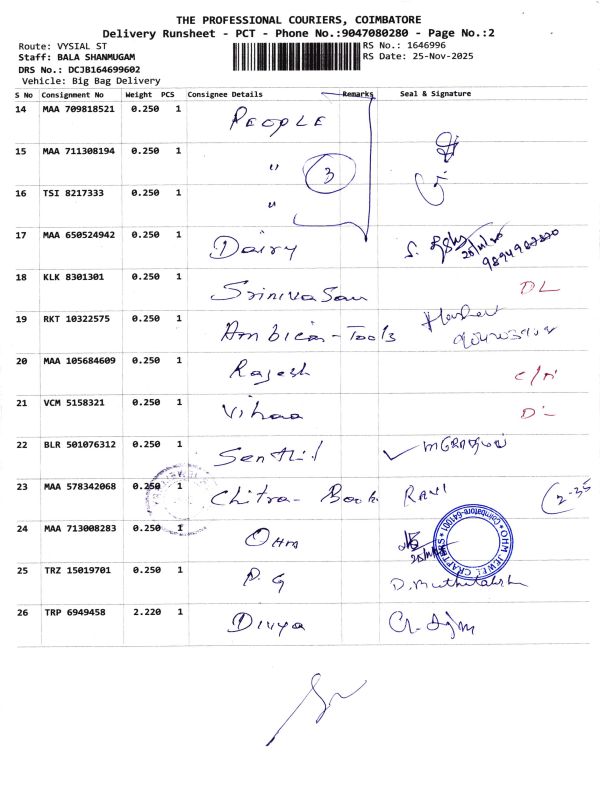 THE PROFESSIONAL COURIERS, COIMBATORE
Delivery Runsheet - PCT - Phone No.:9047080280 - Page No.:2
Route: VYSIAL ST RS No.: 1646996
Staff: BALA SHANMUGAM RS Date: 25-Nov-2025
DRS No.: DCJB164699602
Vehicle: Big Bag Delivery
S No Consignment No Weight PCS Consignee Details Remarks Seal & Signature
14 MAA 709818521 0.250 1 PEOPLE
15 MAA 711308194 0.250 1 " 3
16 TSI 8217333 0.250 1 "
17 MAA 650524942 0.250 1 Dairy
18 KLK 8301301 0.250 1 Srinivasan DL
19 RKT 10322575 0.250 1 Ambica-Tools
20 MAA 105684609 0.250 1 Rajesh
21 VCM 5158321 0.250 1 Vihaa
22 BLR 501076312 0.250 1 Senthil
23 MAA 578342068 0.250 1 Chitra- Book RAVI 2-35
24 MAA 713008283 0.250 1 Ohm
OHM JEWEL CRAFTERS * Coimbatore-641001 *
25 TRZ 15019701 0.250 1 P.G
26 TRP 6949458 2.220 1 Divya